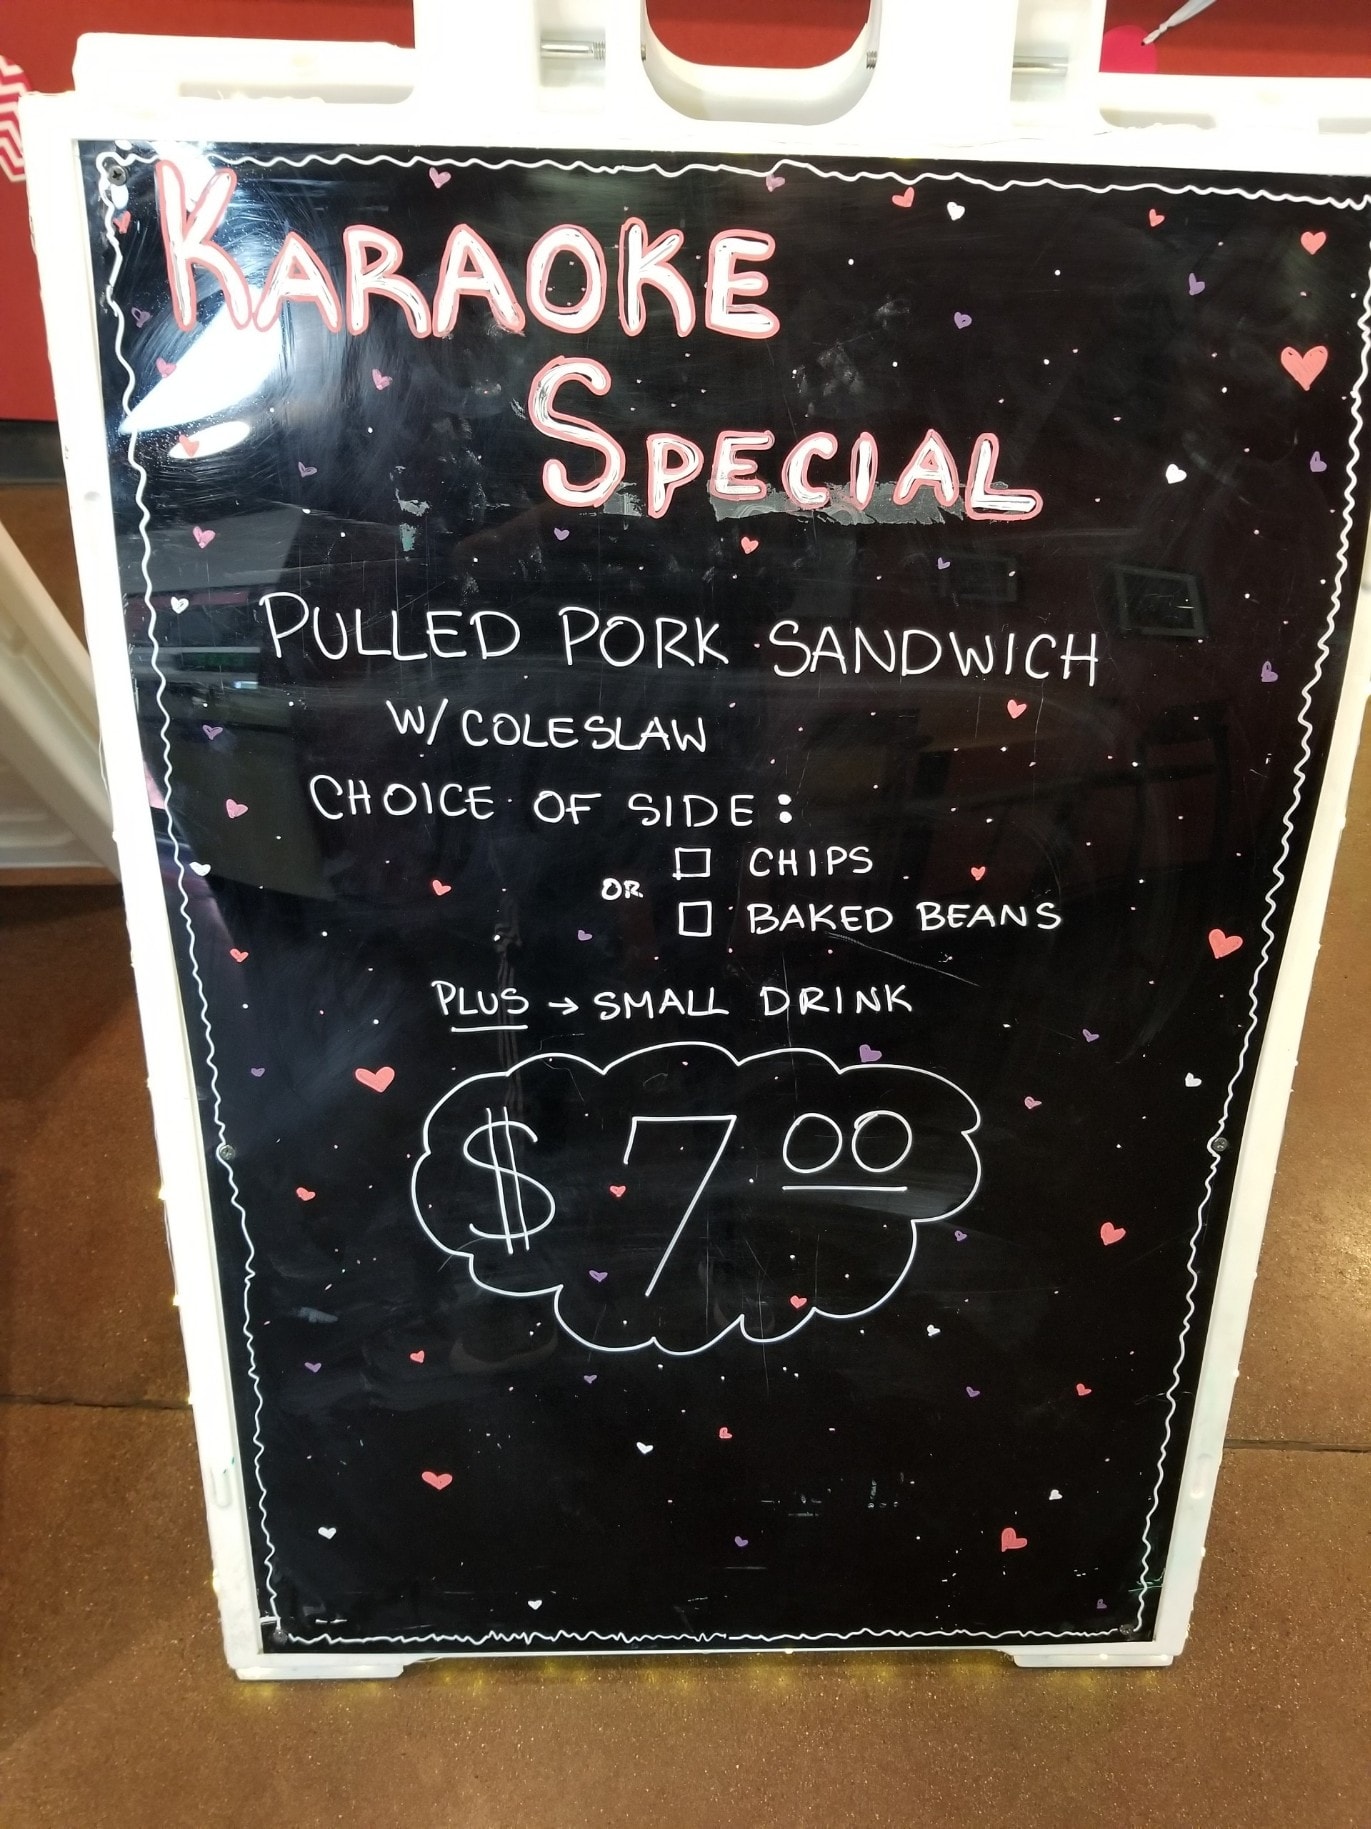 KARAOKE
SPECIAL
PULLED PORK SANDWICH
W/ COLESLAW
CHOICE OF SIDE:
CHIPS
OR
BAKED BEANS
PLUS → SMALL DRINK
$ 7 00